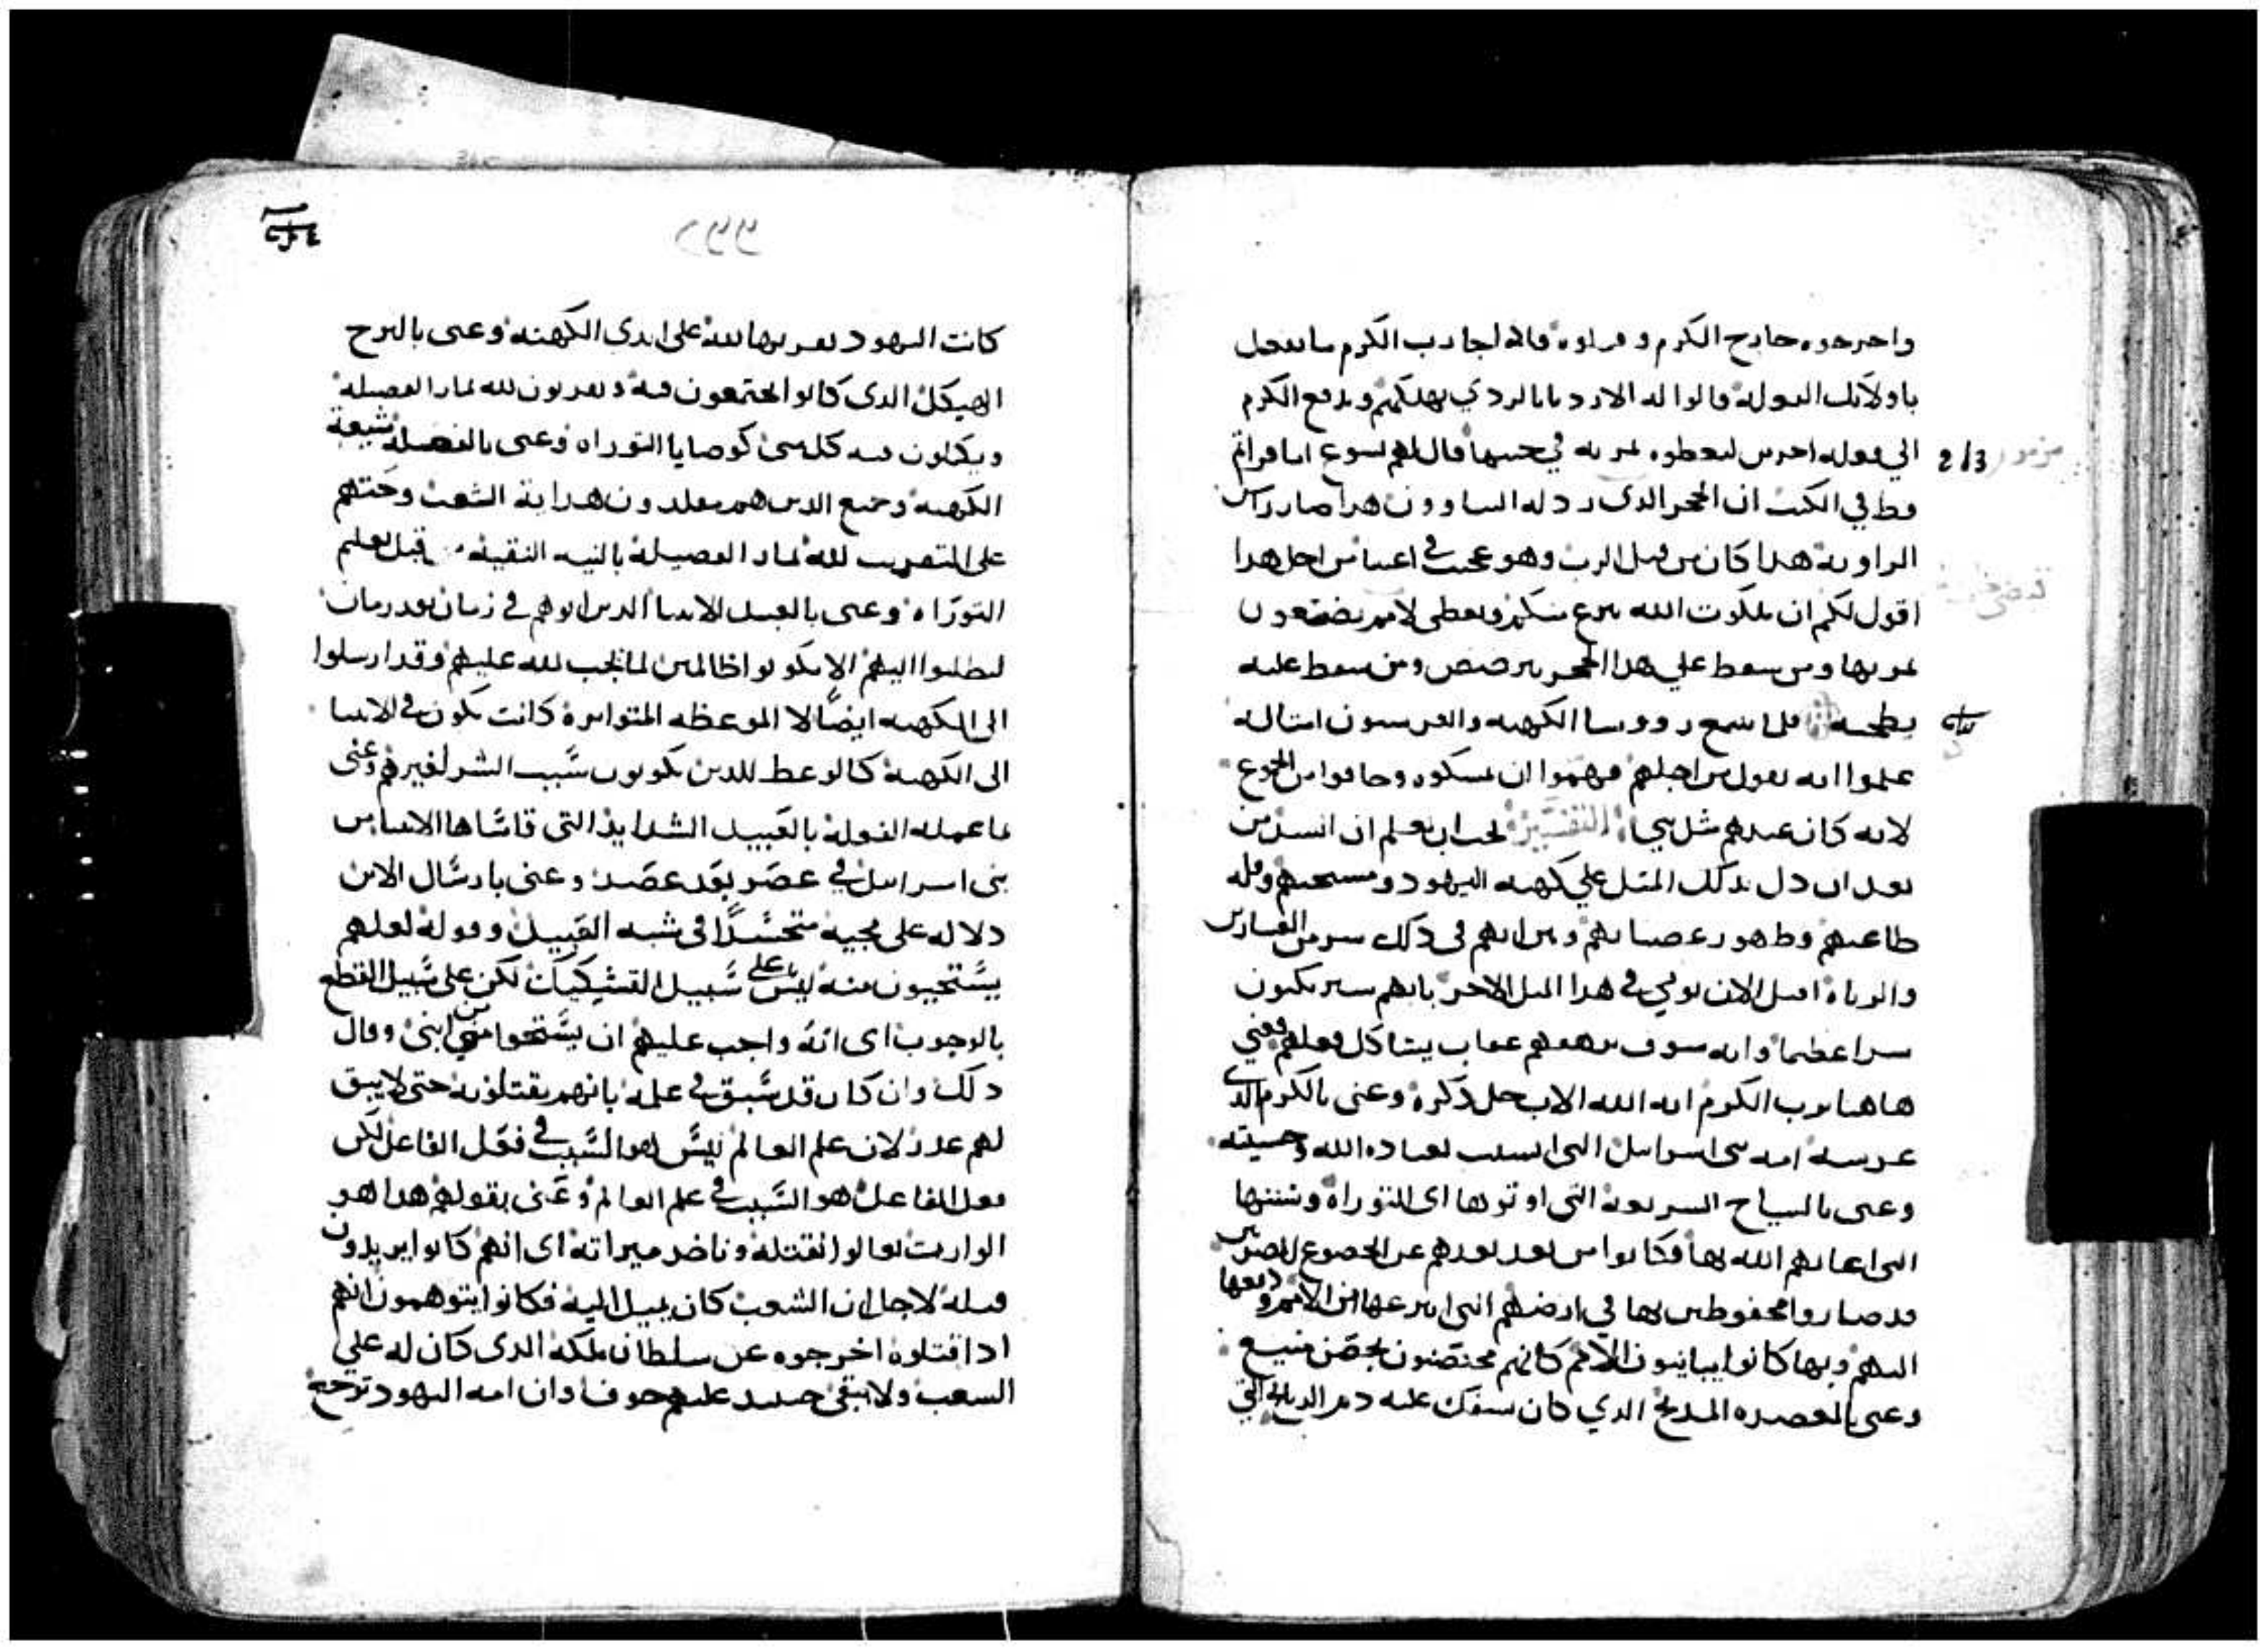 واخرجوه خارج الكرم وقتلوه فاذا جا رب الكرم ما يفعل
باولايك الفعلة قالوا له الاردياء بالردي يهلكهم ويدفع الكرم
الي فعله اخرين ليعطوه ثمرته في حينها قال لهم يسوع اما قراتم
قط في الكتب ان الحجر الدى ردله البناوون هدا صار راس
الزاوية هدا كان من قبل الرب وهو عجيب في اعيننا من اجل هدا
اقول لكم ان ملكوت الله ينزع منكم ويعطى لامم يصنعون
ثمرتها ومن سقط علي هدا الحجر يترضض ومن سقط عليه
يطحنه فلما سمع رووسا الكهنه والفريسيون امثاله
علموا انه يقول من اجلهم فهموا ان يمسكوه وخافوا من الجموع
لانه كان عندهم مثل نبي التفسير يجب ان نعلم ان السيد من
بعد ان دل بذلك المثل علي كهنه اليهود وقله
طاعتهم وظهور عصيانهم
والزناة اقبل الان في هدا المثل الاخر بانهم سيرتكبون
شرا عظيما وانه سوف عقاب يشاكل فعلهم فعني
هاهنا برب الكرم انه الله الاب جل ذكره وعنى بالكرم الدي
غرسه امه بنى اسرايل التى لعباده الله وخشيته
وعنى بالسياج الشريعة التى اوتوها اى التوراة وسننها
التى اعانهم الله بها فكانوا من بعد
قد صاروا محفوظين بها في ارضهم التى انتزعها من الامم ودفعها
اليهم وبها كانوا يباينون الامم كانهم محتصنون بحصن منيع
وعنى بالمعصره المدبح الدي كان يسفك عليه دم الدبايح التي
مزمور 2/3
٢٢٢
كانت اليهود تقربها لله على ايدى الكهنة وعنى بالبرج
الهيكل الدى كانوا يجتمعون فيه ويقربون لله ثمار الفضيلة
ويكملون فيه كلشى كوصايا التوراه وعنى بالفعله شيعة
الكهنه وجميع الدين هم مقلدون هداية الشعب وحثهم
على التقريب لله ثمار الفضيلة بالنيه النقية قبل تعلم
التوراه وعنى بالعبيد الانبيا الدين اتوهم في زمان بعد زمان
ليطلبوا اليهم الا يكونوا ظالمين لما يجب لله عليهم وقد ارسلوا
الى الكهنه ايضا لان الموعظه المتواتره كانت تكون من الانبيا
الى الكهنة كالوعظ للدين يكونون سبب الشر لغيرهم وعنى
بما عمله الفعلة بالعبيد الشدايد التى قاساها الانبيا من
بنى اسرايل في عصر بعد عصر وعنى بارسال الابن
دلاله على مجيه متجسدا في شبه العبيد وقوله لعلهم
يستحيون منه ليس على سبيل التشكيك لكن على سبيل القطع
بالوجوب اى انه واجب عليهم ان يستحوا من ابنى وقال
دلك وان كان قد سبق في علمه بانهم يقتلونه حتى لا يبق
لهم عدر لان علم العالم ليس هو السبب في فعل الفاعل لكن
فعل الفاعل هو السبب في علم العالم وعنى بقولهم هدا هو
الوارث تعالوا نقتله وناخد ميراثه اى انهم كانوا يريدون
قتله لاجل ان الشعب كان يميل اليه فكانوا يتوهمون انهم
ادا قتلوه اخرجوه عن سلطان ملكه الدى كان له علي
الشعب ولا يبقى حينيد عليهم خوفا وان امه اليهود ترجع